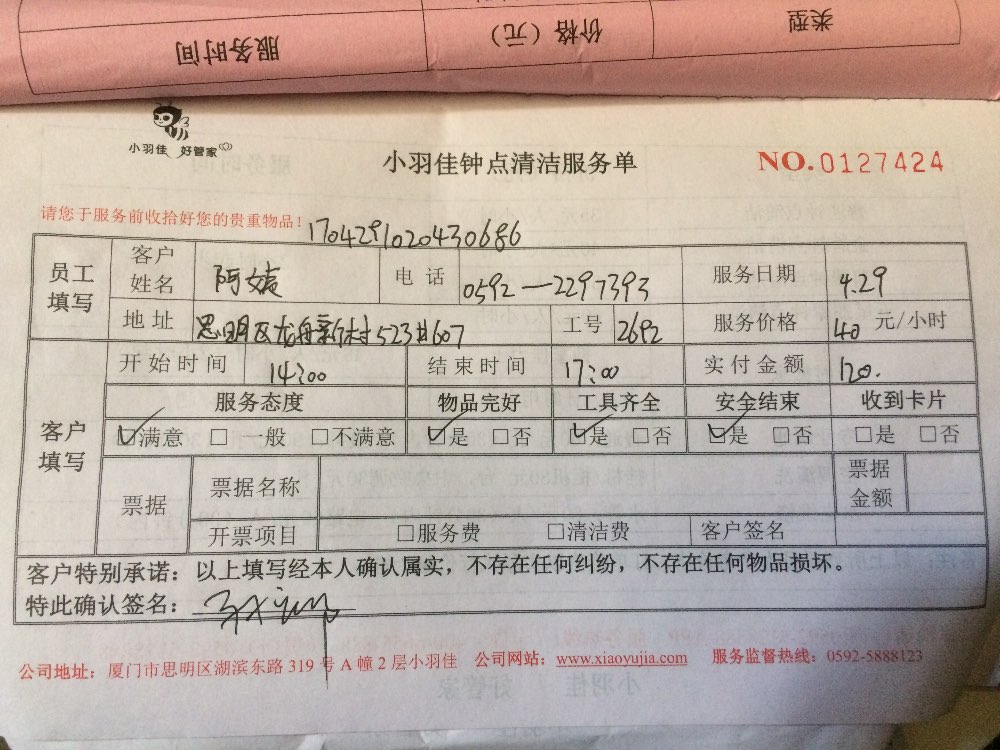 类型 价格（元） 服务时间
小羽佳 好管家
小羽佳钟点清洁服务单
NO.0127424
请您于服务前收拾好您的贵重物品！
1704291020430686
员工填写 客户姓名 阿媛 电话 0592—2297393 服务日期 4.29
地址 思明区龙舟新村523#607 工号 2692 服务价格 40 元/小时
客户填写 开始时间 14:00 结束时间 17:00 实付金额 120.
服务态度 物品完好 工具齐全 安全结束 收到卡片
☑满意 □一般 □不满意 ☑是 □否 ☑是 □否 ☑是 □否 □是 □否
票据 票据名称 票据金额
开票项目 □服务费 □清洁费 客户签名
客户特别承诺：以上填写经本人确认属实，不存在任何纠纷，不存在任何物品损坏。
特此确认签名：
公司地址：厦门市思明区湖滨东路 319 号 A 幢 2 层小羽佳 公司网站：www.xiaoyujia.com 服务监督热线：0592-5888123